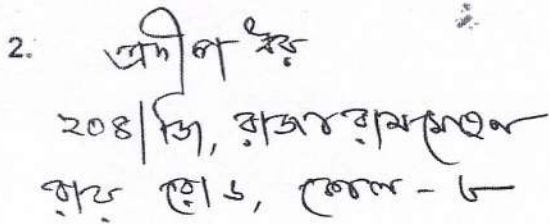 2. প্রদীপ ধর
২০৪/জি, রাজা রামমোহন
রায় রোড, কোল - ৮